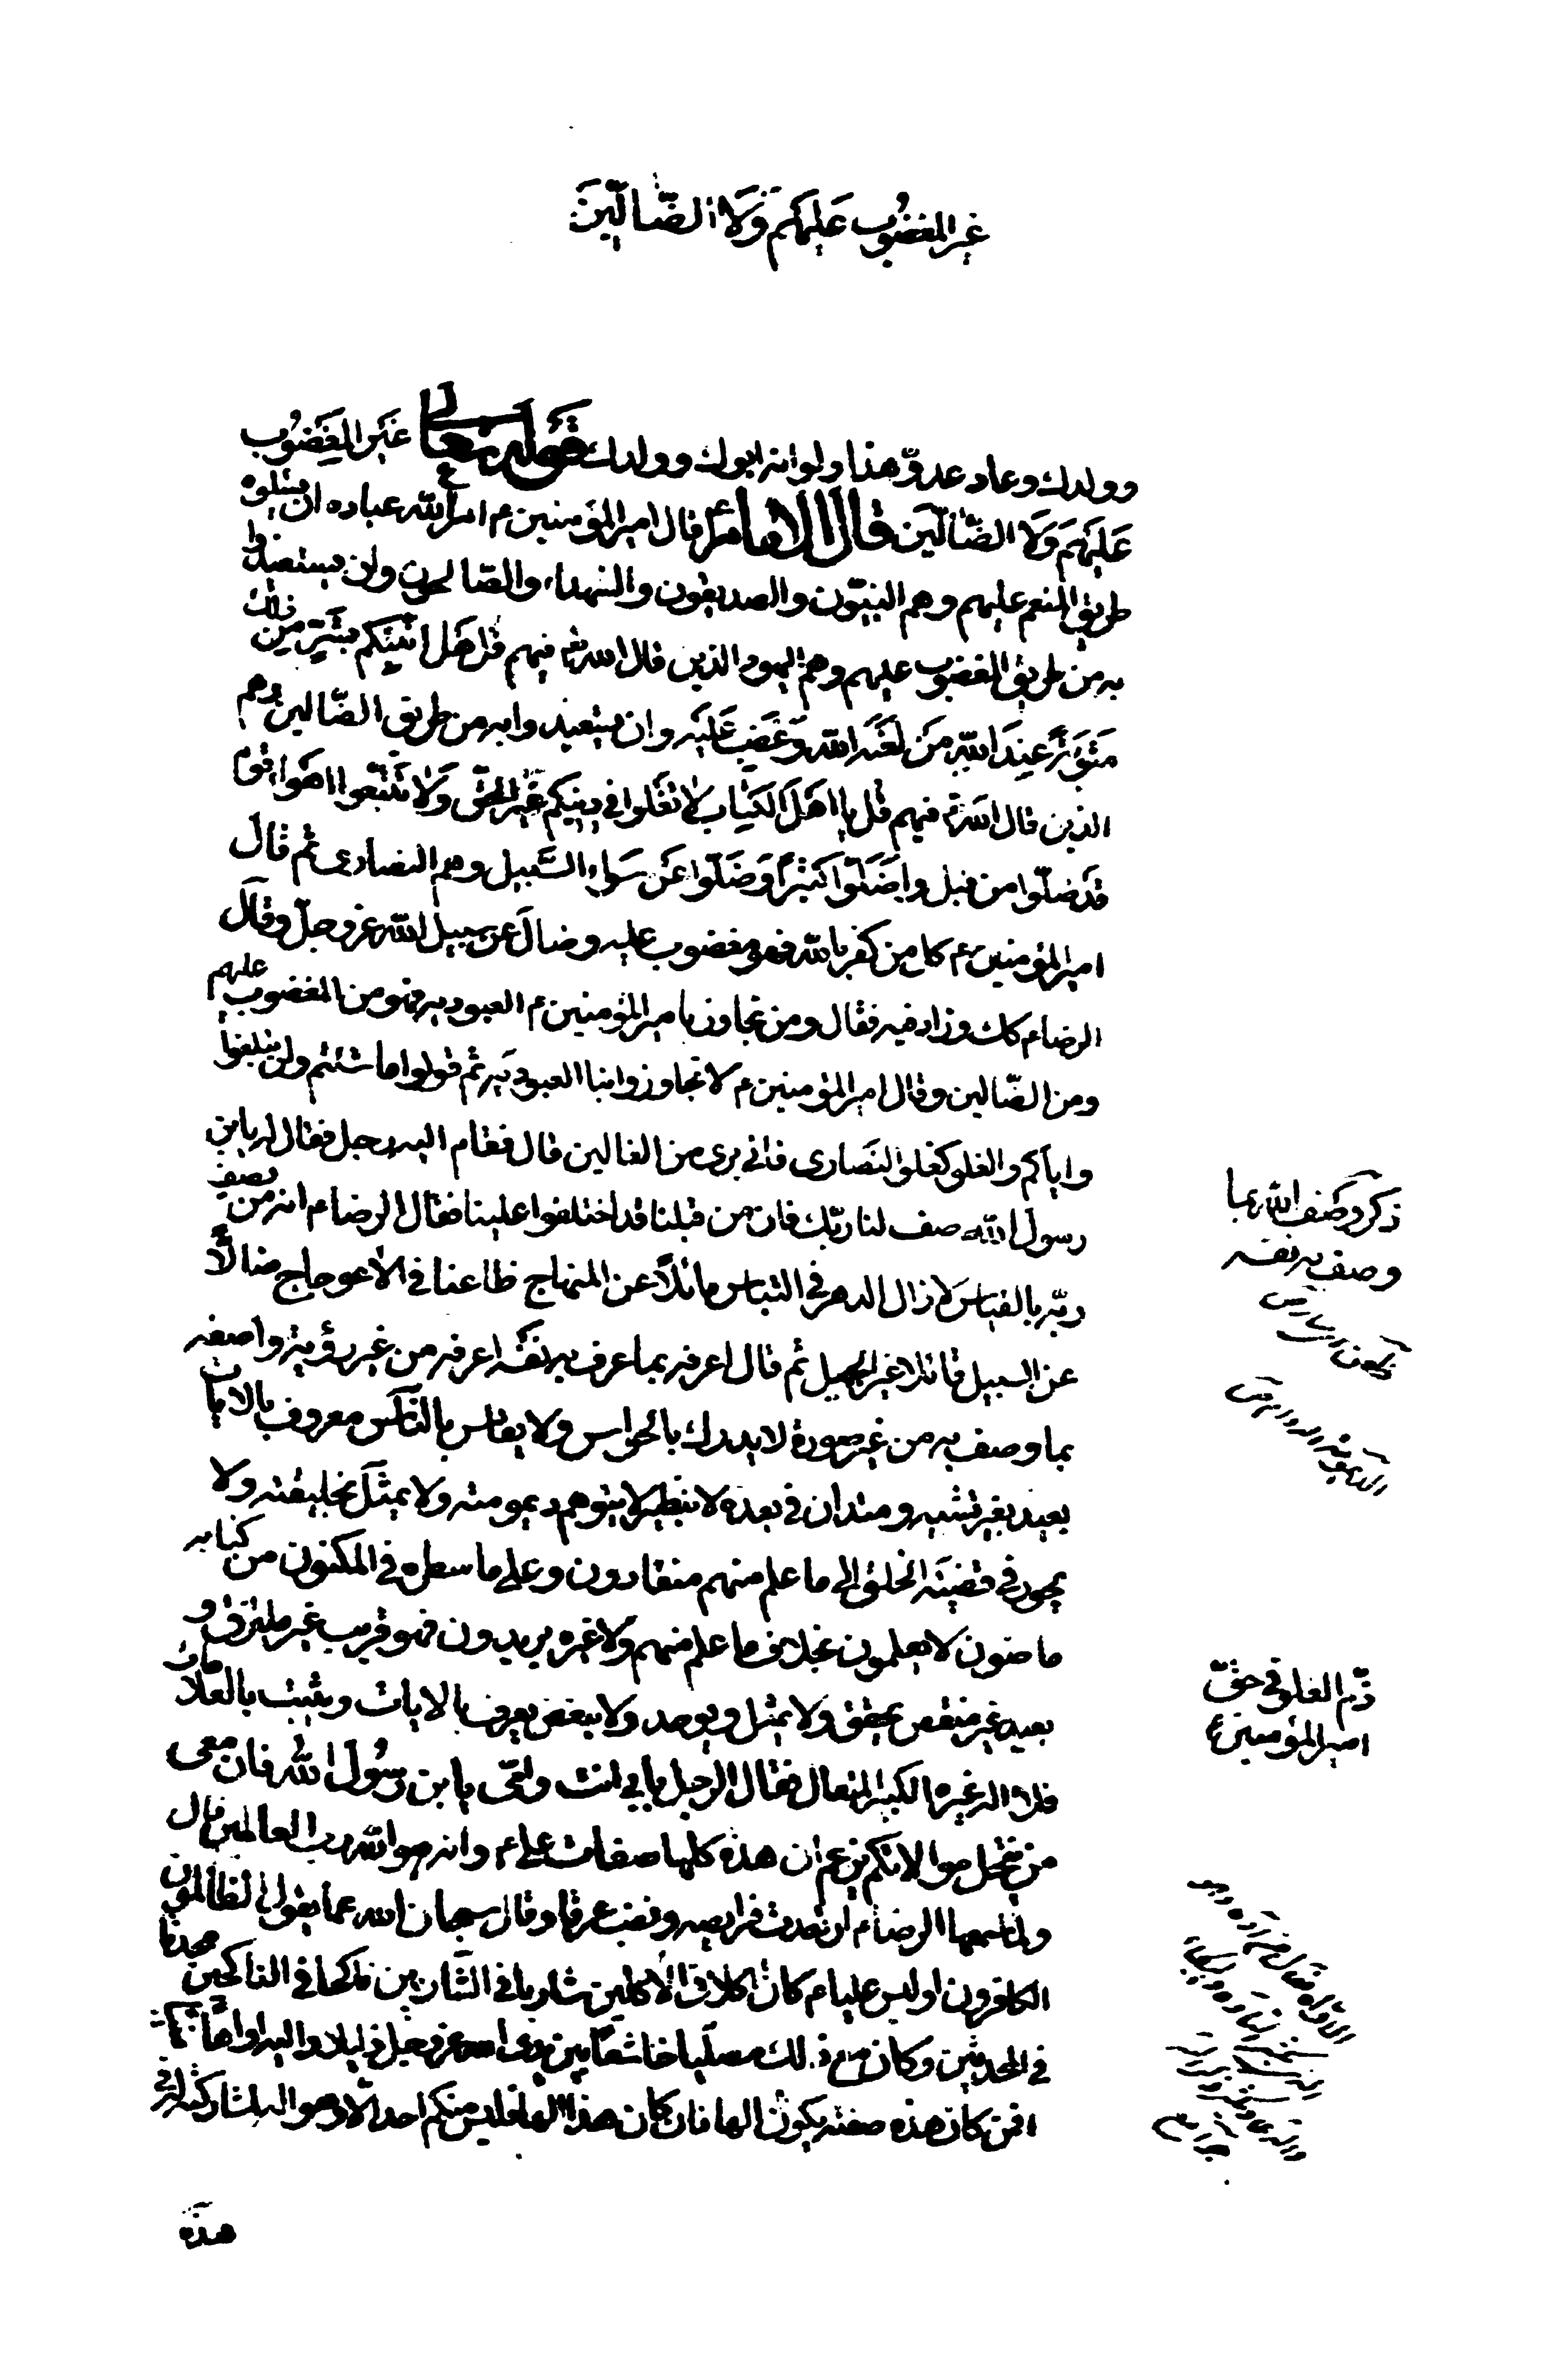 غير المغضوب عليهم ولا الضالين
وولدك وعاد عدوّ هذا ولو انه ابوك وولدك قوله تعالى غَيرِ المَغضُوبِ
عَلَيهِم وَلَا الضّالّين قال الامام ع قال امير المؤمنين ع امر الله عباده ان يسئلوه
طريق المنعم عليهم وهم النبيّون والصديقون والشهداء والصالحون وان يستعيذوا
به من طريق المغضوب عليهم وهم اليهود الذين قال الله تع فيهم قل هل انبئكم بشرّ من ذلك
مثوبة عند الله من لعنه الله وغضب عليه وان يستعيذوا به من طريق الضّالين وهم
الذين قال الله تع فيهم قل يا اهل الكتاب لا تغلوا في دينكم غير الحق ولا تتبعوا اهواء قوم
قد ضلّوا من قبل واضلّوا كثيراً وضلّوا عن سواء السّبيل وهم النصارى ثم قال
امير المؤمنين ع كل من كفر بالله فهو مغضوب عليه وضالّ عن سبيل الله عز وجلّ وقال
الرضا ع كك وزاد فيه فقال ومن تجاوز بامير المؤمنين ع العبوديه فهو من المغضوب عليهم
ومن الضّالين وقال امير المؤمنين ع لا تجاوزوا بنا العبوديّه ثم قولوا ما شئتم ولن تبلغوا
واياكم والغلو كغلو النصارى فاني برئ من الغالين قال فقام اليه رجل فقال له يابن
رسول الله صف لنا ربّك فان من قبلنا قد اختلفوا علينا فقال الرضا ع انه من يصف
ربّه بالقياس لا زال الدهر في التباس مائلاً عن المنهاج ظاعنا في الاعوجاج ضالاًّ
عن السبيل قائلا غير الجميل ثم قال اعرفه بما عرف به نفسه اعرفه من غير رؤية واصفه
بما وصف به من غير صورة لا يدرك بالحواس ولا يقاس بالنّاس معروف بالايات
بعيد بغير تشبيه ومتدان في بعده لا بنظير لا يتوهم ديمومته ولا يمثّل بخليقته ولا
يجور في قضيته الخلق الى ما علم منهم منقادون وعلى ما سطره في المكنون من كتابه
ماضون لا يعملون بخلاف ما علم منهم ولا غيره يريدون فهو قريب غير ملتزق و
بعيد غير منقص يحقق ولا يمثل ويوحد ولا يبعض يعرف بالايات ويثبت بالعلامات
فلا اله غيره الكبير المتعال فقال الرجل بابي انت وامّي يابن رسول الله فان معى
من ينتحل موالاتكم يزعم ان هذه كلها صفات علي ع وانه هو الله رب العالمين قال
ولما سمعها الرضا ع ارتعدت فرايصه وتصبب عرقا وقال سبحان الله عما يقول الظالمون
الكافرون اوليس عليا ع كان اكلا في الاكلين شاربا في الشاربين ناكحا في الناكحين محدثا
في المحدثين وكان مع ذلك مصليا خاشعاً بين يدي الله عز وجل ذليلا واليه اواهاً
افمن كان هذه صفته يكون الها فان كان هذا الها فليس منكم احد الا وهو اله لمشاركته له في
هذه
ذكر وصف الله بما
وصف به نفسه
ذمّ الغلو في حقّ
امير المؤمنين ع